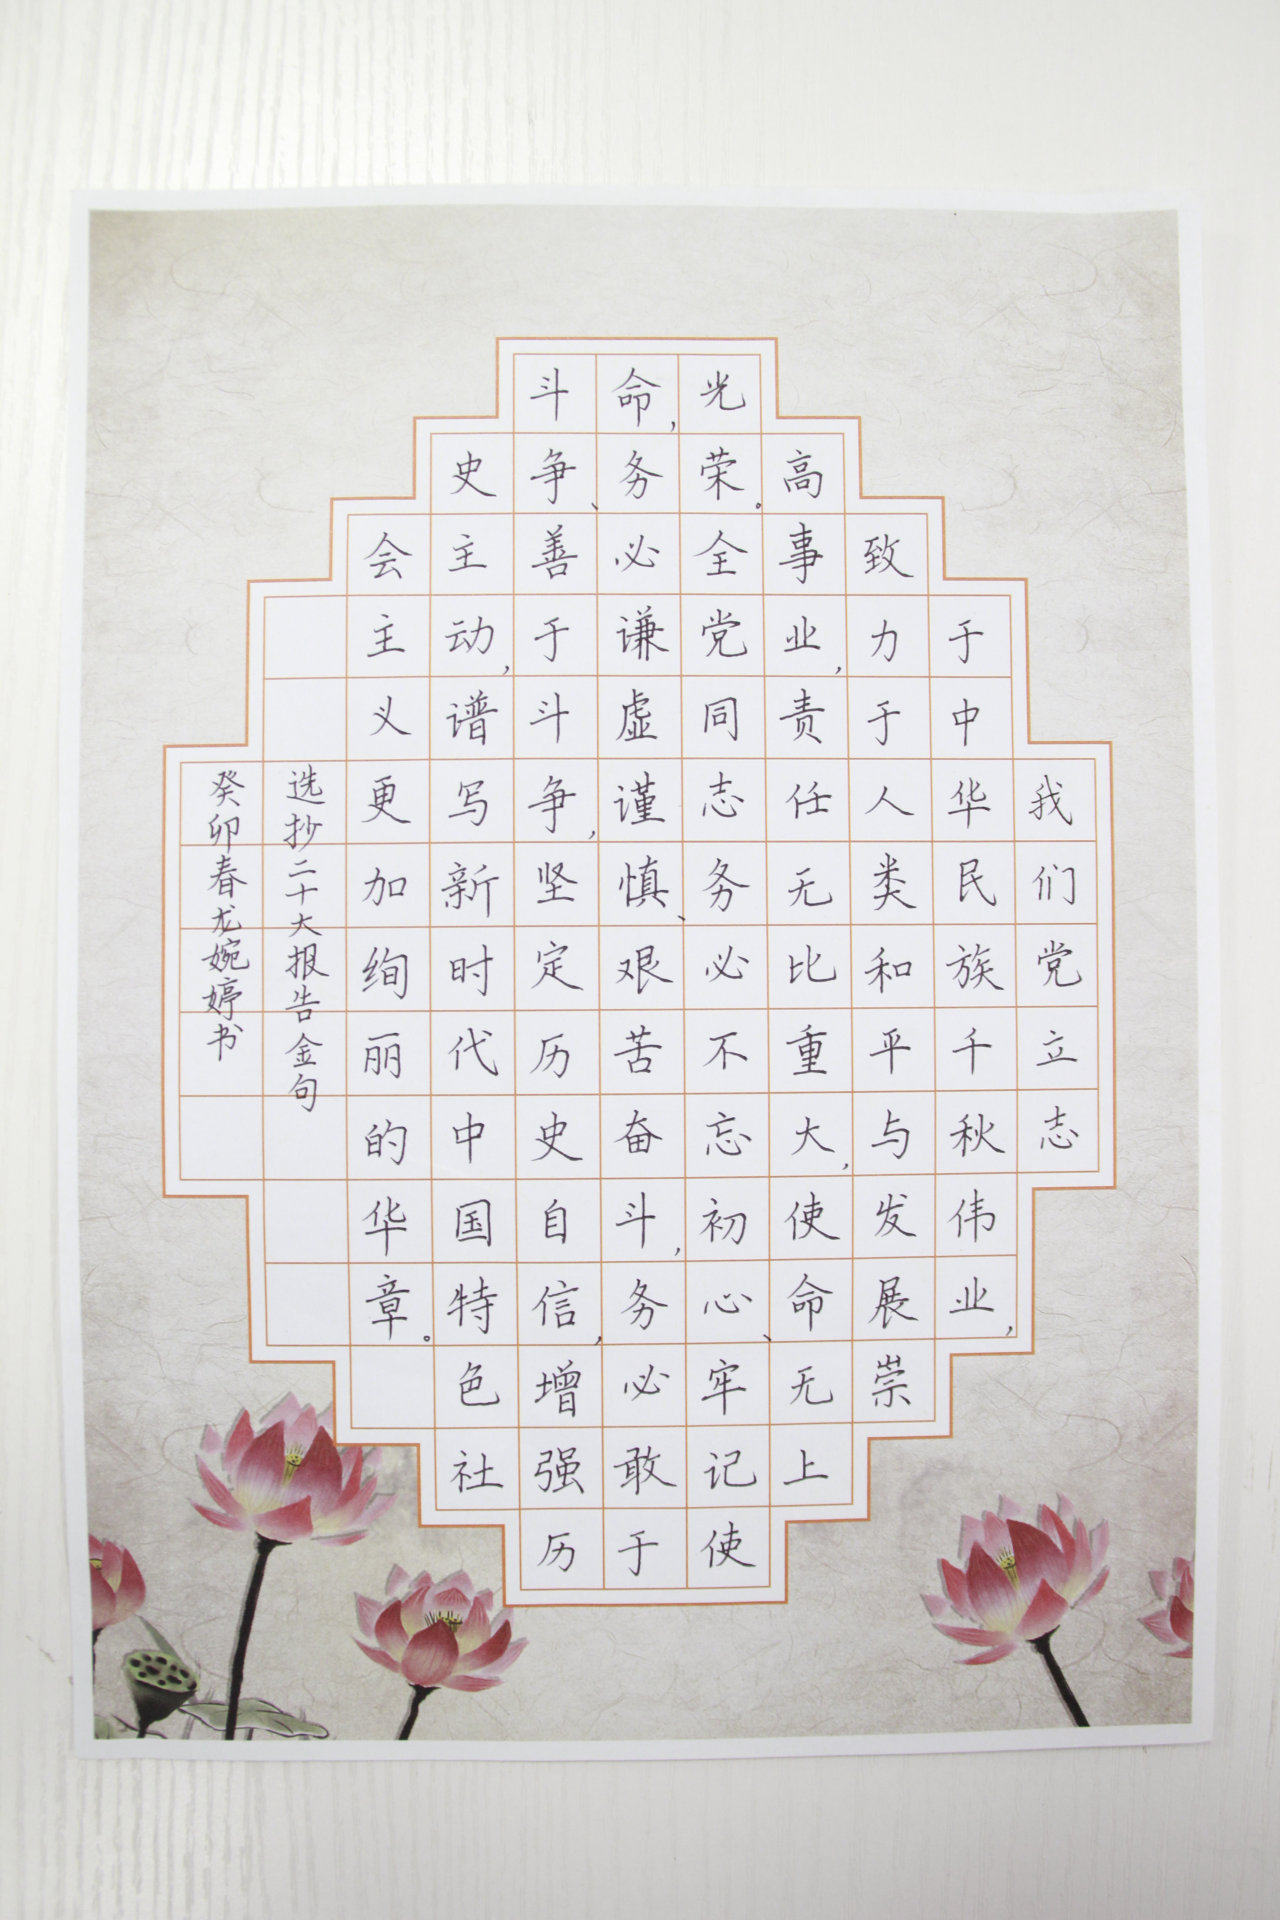 我们党立志
于中华民族千秋伟业，
致力于人类和平与发展崇
高事业，责任无比重大，使命无上
光荣。全党同志务必不忘初心、牢记使
命，务必谦虚谨慎、艰苦奋斗，务必敢于
斗争、善于斗争，坚定历史自信，增强历
史主动，谱写新时代中国特色社
会主义更加绚丽的华章。
选抄二十大报告金句
癸卯春龙婉婷书